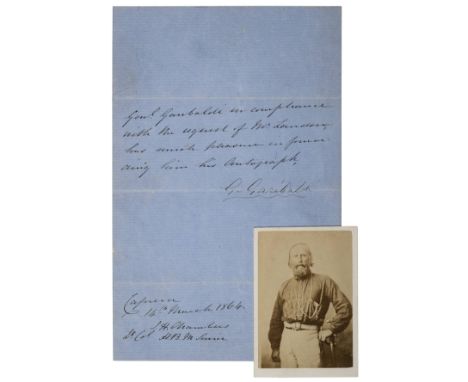 Genl Garibaldi in compliance
with the request of Mr
has much pleasure in forwar
ding him his Autograph,
G. Garibaldi
Caprera
14th March 1864
Lt Col J. H. Chambers